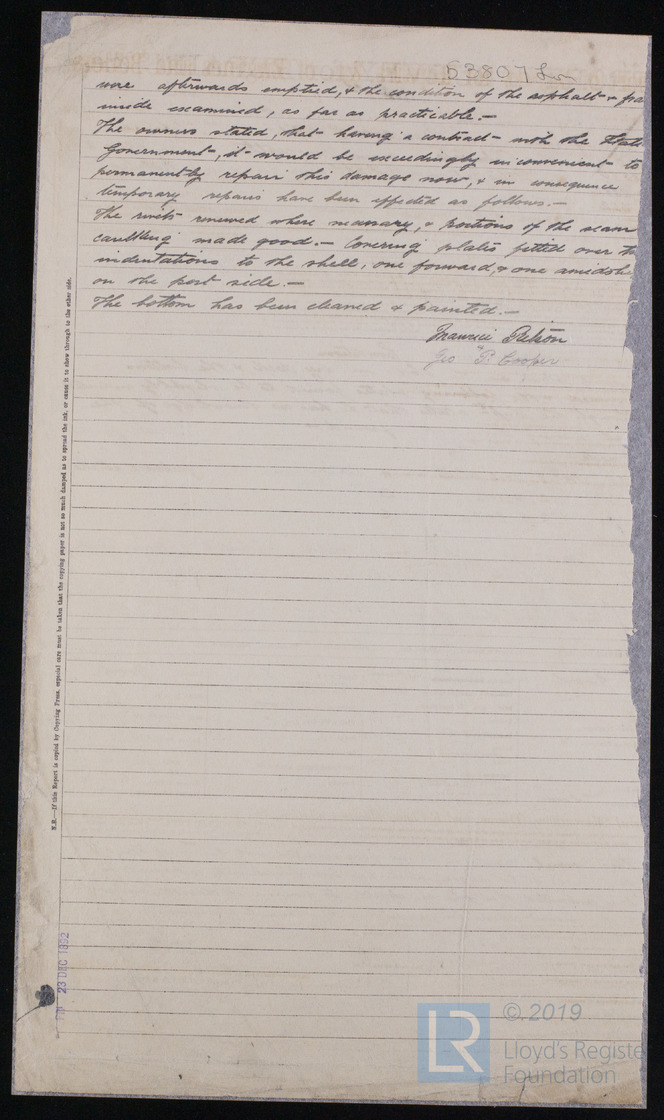 53807 Lon
were afterwards emptied, & the condition of the asphalt & fra
inside examined, as far as practicable.—
The owners stated, that having a contract with the Itali
Government, it would be exceedingly inconvenient to
permanently repair this damage now, & in consequence
temporary repairs have been effected as follows.—
The rivets renewed where necessary, & portions of the seam
caulking made good.— Covering plates fitted over th
indentations to the shell, one forward, & one amidshi
on the port side.—
The bottom has been cleaned & painted.—
Geo. S. Cooper
N.B.—If this Report is copied by Copying Press, especial care must be taken that the copying paper is not so much damped as to spread the ink, or cause it to show through to the other side.
23 DEC 1892
LR
© 2019
Lloyd's Registe
Foundation